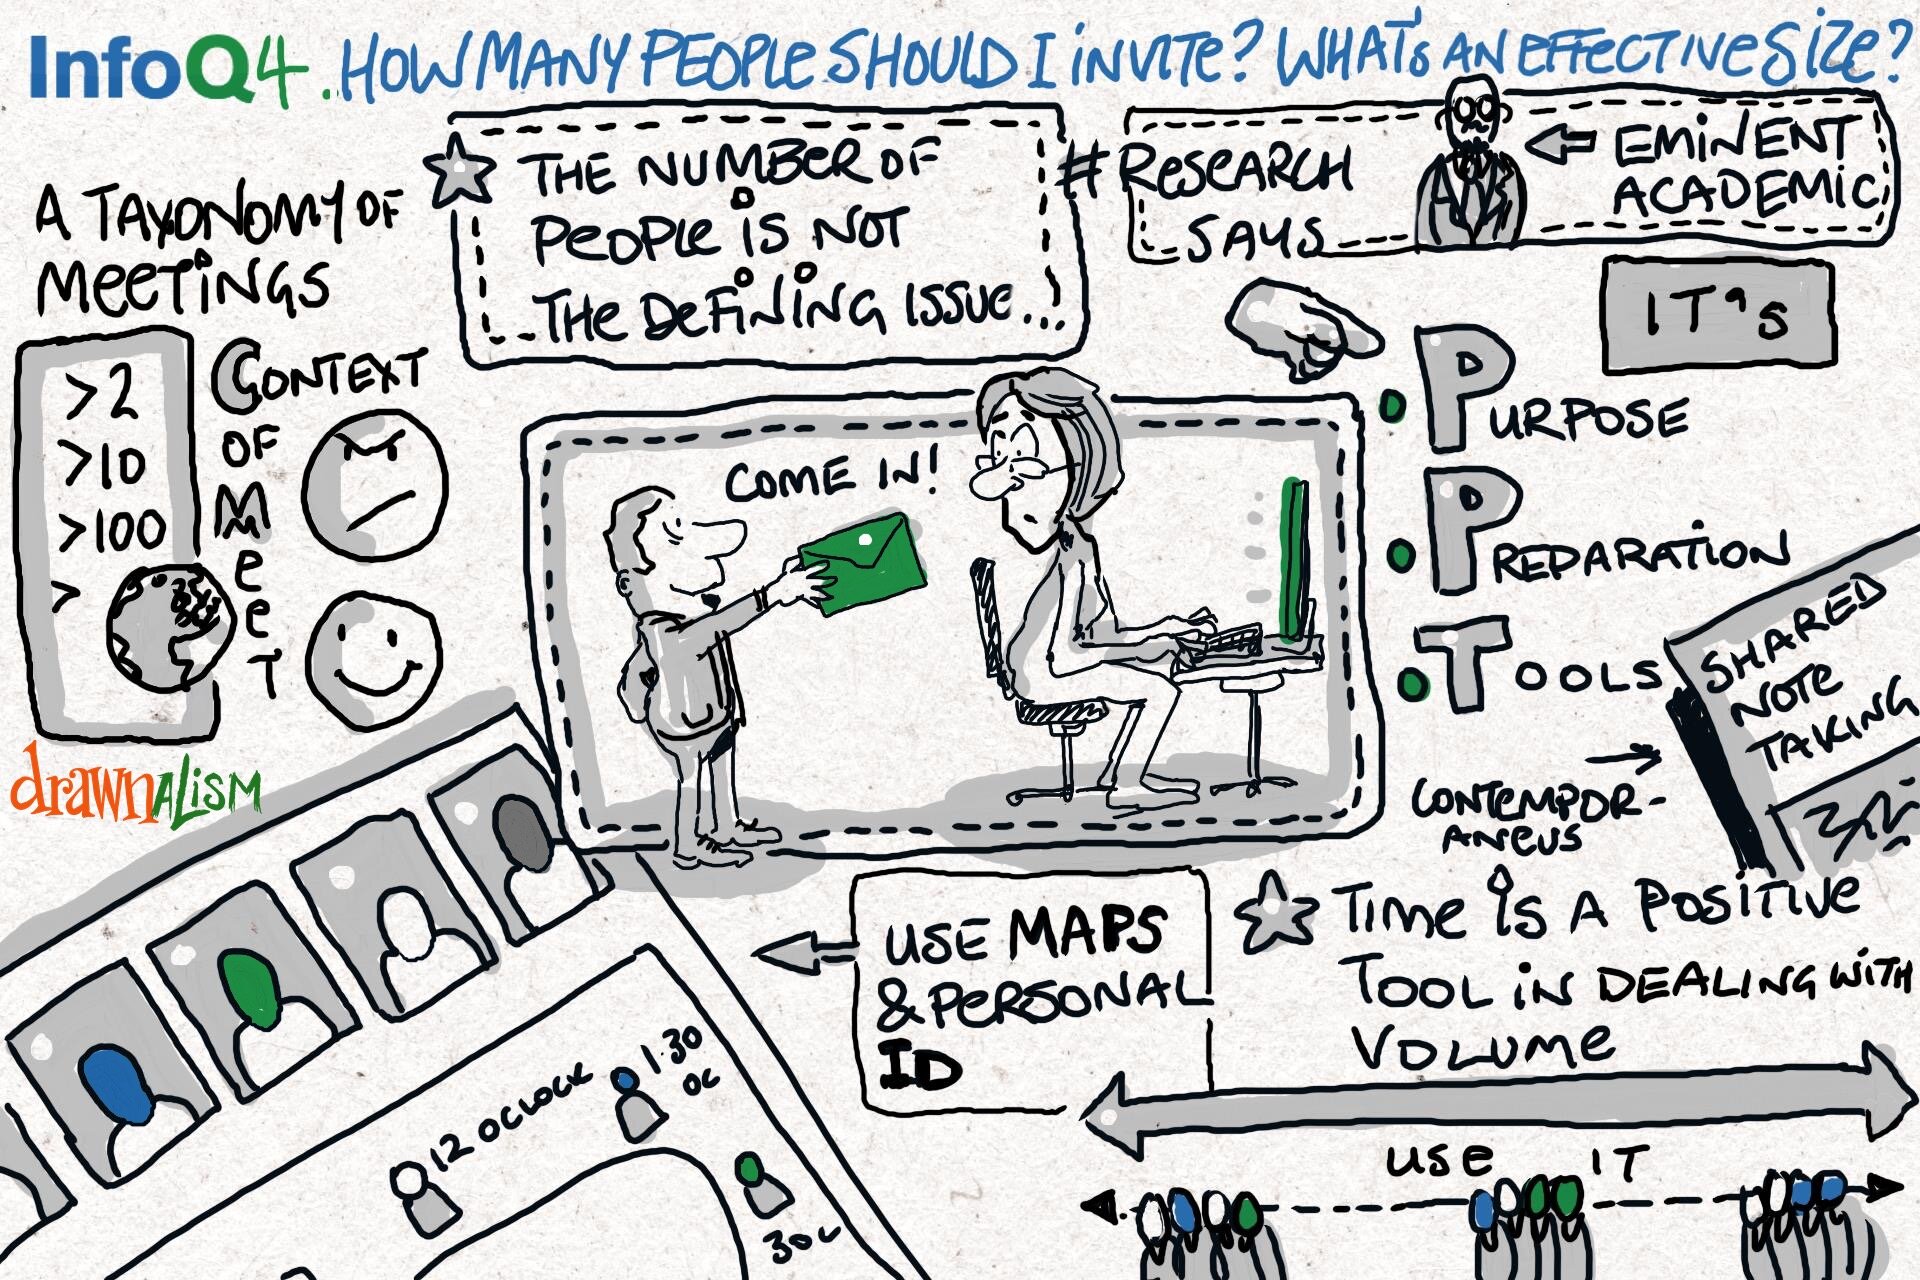 InfoQ4..HOW MANY PEOPLE SHOULD I INVITE? WHAT'S AN EFFECTIVE SIZE?
A TAXONOMY OF
MEETINGS
>2
>10
>100
>
CONTEXT
OF
MEET
THE NUMBER OF
PEOPLE IS NOT
THE DEFINING ISSUE...
#RESEARCH
SAYS
EMINENT
ACADEMIC
IT's
COME IN!
PURPOSE
PREPARATION
TOOLS
SHARED
NOTE
TAKING
CONTEMPOR-
ANEUS
drawnALISM
USE MAPS
& PERSONAL
ID
12 OCLOCK
1.30
OC
3OC
TIME IS A POSITIVE
TOOL IN DEALING WITH
VOLUME
USE IT